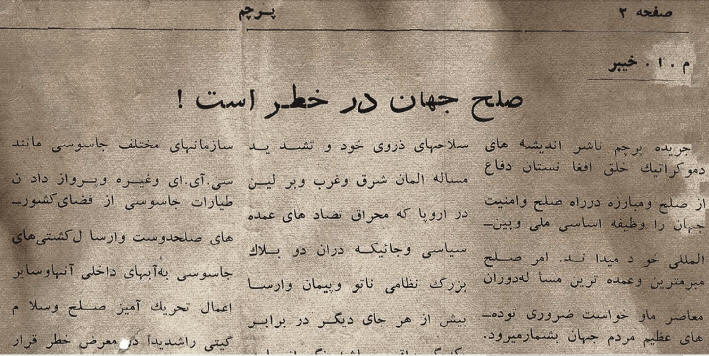 صفحه ۲
پرچم
م . ا . خیبر
صلح جهان در خطر است !
جریده پرچم ناشر اندیشه های
دموکراتیک خلق افغا نستان دفاع
از صلح ومبارزه درراه صلح وامنیت
جهان را وظیفه اساسی ملی وبین–
المللی خو د میدا ند. امر صلح
مبرمترین وعمده ترین مسا لهدوران
معاصر ماو خواست ضروری توده–
های عظیم مردم جهان بشمارمیرود.
سلاحهای ذروی خود و تشد ید
مساله المان شرق وغرب وبر لین
در اروپا که محراق تضاد های عمده
سیاسی وجائیکه دران دو بلاک
بزرگ نظامی ناتو وپیمان وارسا
بیش از هر جای دیگر در برابر
سازمانهای مختلف جاسوسی مانند
سی.آی.ای وغیره وپرواز دادن
طیارات جاسوسی از فضای کشور–
های صلحدوست وارسا ل کشتی های
جاسوسی به آبهای داخلی آنهاوسایر
اعمال تحریک آمیز صلح وسلا م
گیتی راشدیداً در معرض خطر قرار